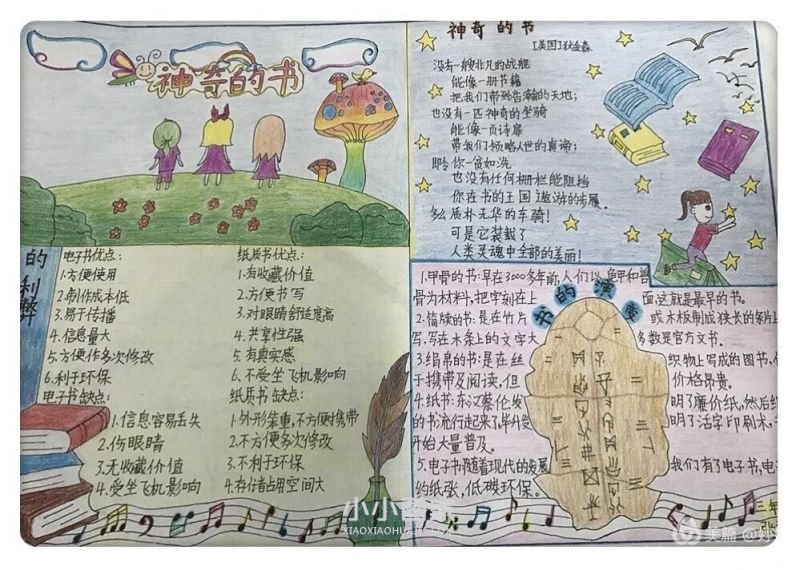 神奇的书
的利弊
电子书优点:
1.方便使用
2.制作成本低
3.易于传播
4.信息量大
5.方便作多次修改
6.利于环保
电子书缺点:
1.信息容易丢失
2.伤眼睛
3.无收藏价值
4.受坐飞机影响
纸质书优点:
1.有收藏价值
2.方便书写
3.对眼睛舒适度高
4.共享性强
5.有真实感
6.不受坐飞机影响
纸质书缺点:
1.外形笨重,不方便携带
2.不方便多次修改
3.不利于环保
4.存储占用空间大
神奇的书
[美国]狄金森
没有一艘非凡的战舰
能像一册书籍
把我们带到浩瀚的天地;
也没有一匹神奇的坐骑
能像一页诗扉
带我们领略人世的真谛;
即令你一贫如洗
也没有任何栅栏能阻挡
你在书的王国遨游的步履。
多么质朴无华的车骑!
可是它装载了
人类灵魂中全部的美丽!
书的演变
1.甲骨的书:早在3000多年前,人们以龟甲和兽
骨为材料,把字刻在上面这就是最早的书。
2.简牍的书:是在竹片或木板制成狭长的条片上
写,写在木条上的文字大多数是官方文书。
3.绢帛的书:是在丝织物上写成的图书,
于携带及阅读,但价格昂贵。
4.纸书:东汉蔡伦发明了廉价纸,然后
的书流行起来了,毕升发明了活字印刷术,
开始大量普及。
5.电子书随着现代的发展我们有了电子书,电
约纸张,低碳环保。
三年
小小
XIAOXIAOHU
美篇 @妙